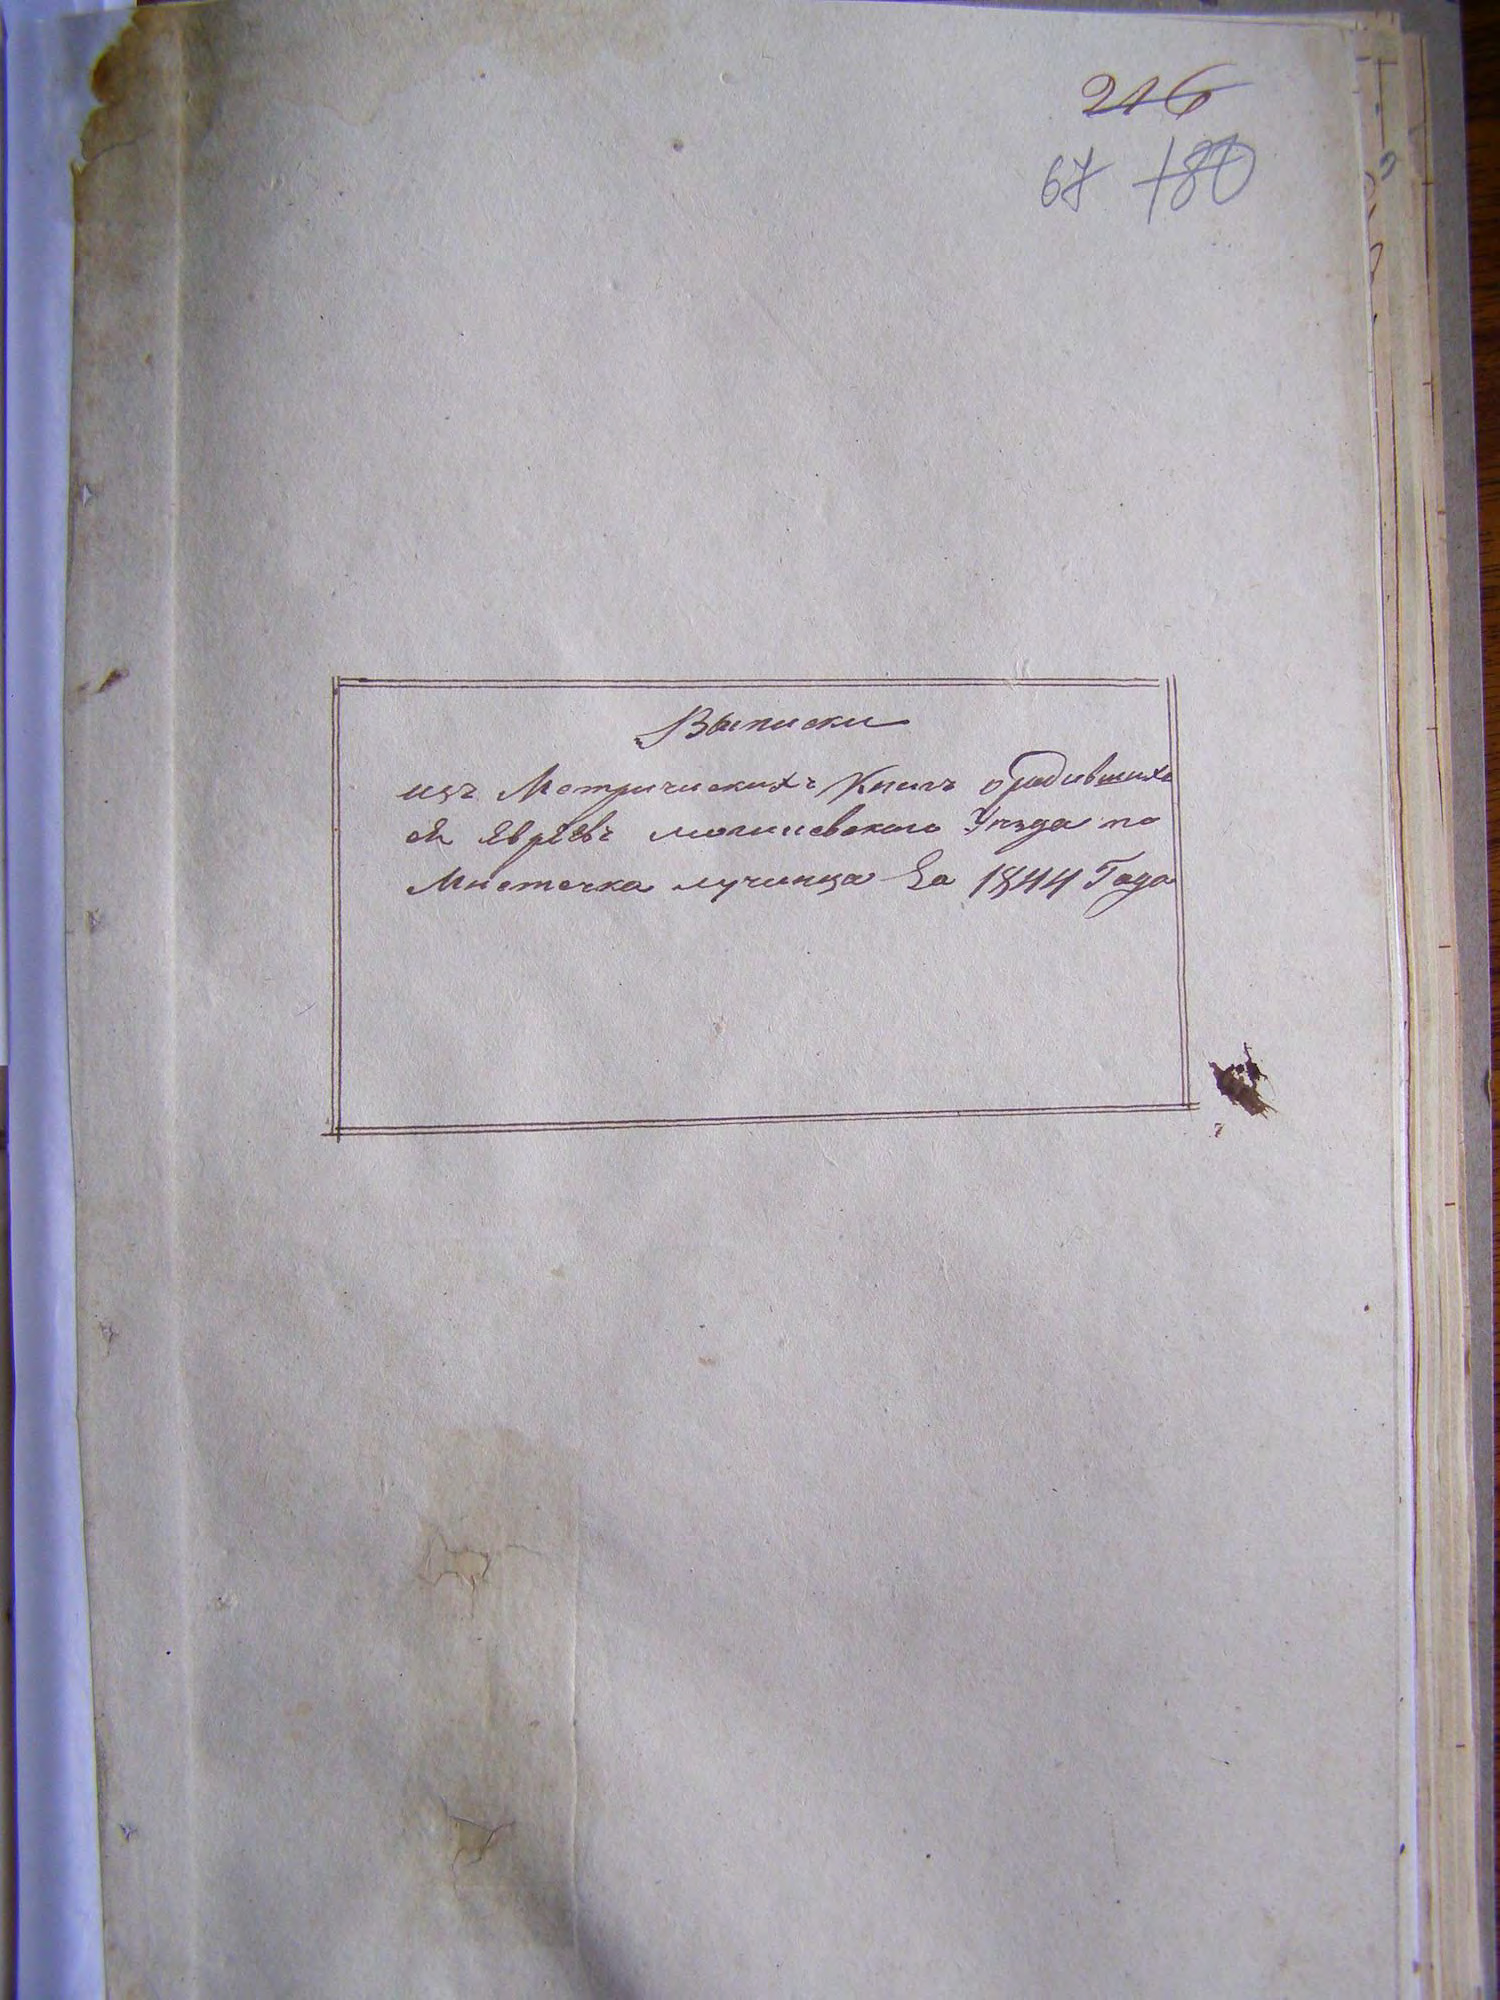 216
67 180
Выписки
изъ Метрическихъ Книгъ о родившихъ
ся Явреевъ могилевского Уезда по
Мистечка лучинца За 1844 Года